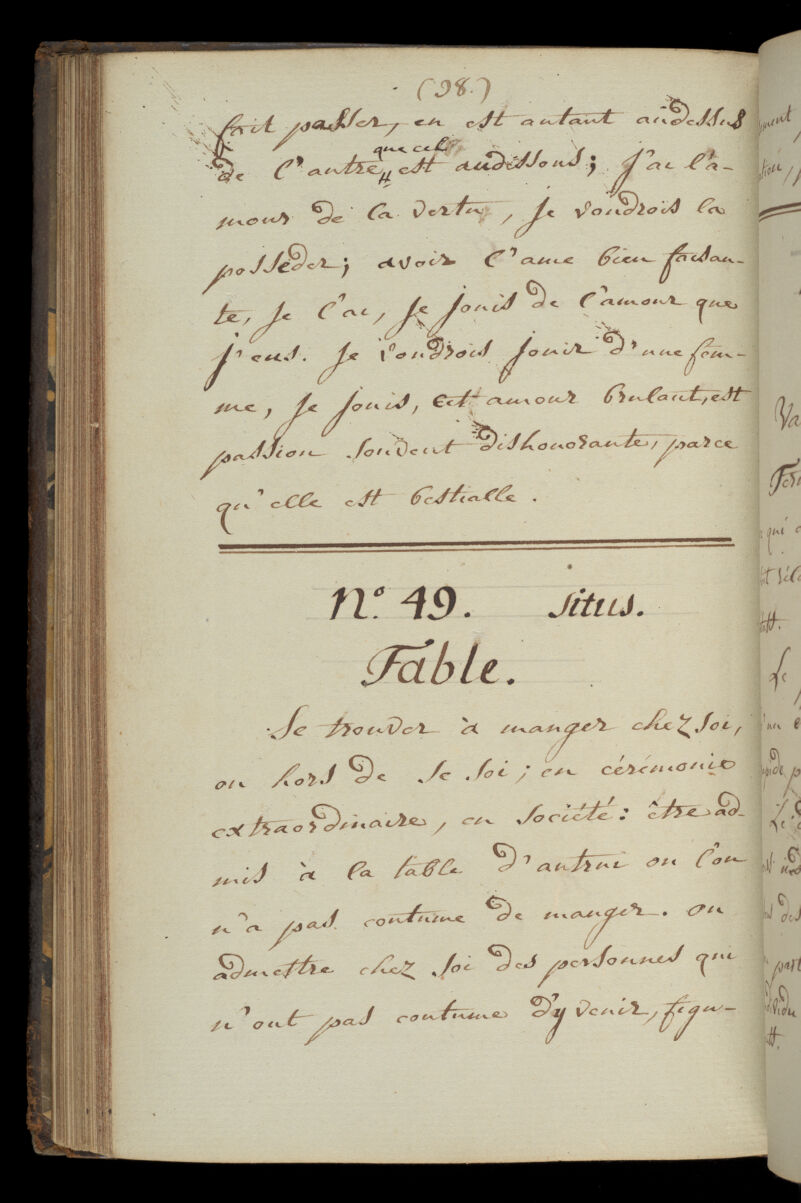 (98.)
fait passer, en est autant audessus
que celle
de l'autre est audissous; j'ai l'a-
mour de la vertu, je voudrois la
posséder; avoir l'ame bien faisan-
te, je l'ai, je jouis de l'amour que
j'eus. je voudrois jouir d'une fem-
me, je jouis, cet amour brulant, est
passion souvent dishonorante, parce
qu'elle est bestialle.
N.º 49. situs.
Table.
Se trouver à manger chez soi,
ou hors de se soi; en cérémonie
extraordinaire, en société: être ad-
mis à la table d'autrui ou l'on
n'a pas coutume de manger. ou
admettre chez soi des personnes qui
n'ont pas coutume d'y venir, figu-